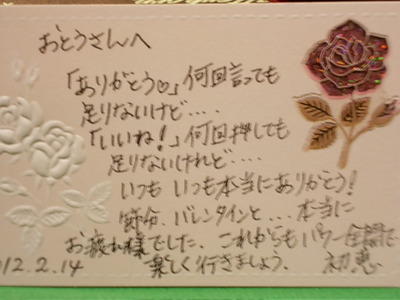 おとうさんへ
「ありがとう♡」何回言っても
足りないけど‥‥
「いいね!」何回押しても
足りないけれど‥‥
いつも いつも本当にありがとう!
節分、バレンタインと‥‥本当に
お疲れ様でした。これからもパワー全開で
12.2.14 楽しく行きましょう。 初恵